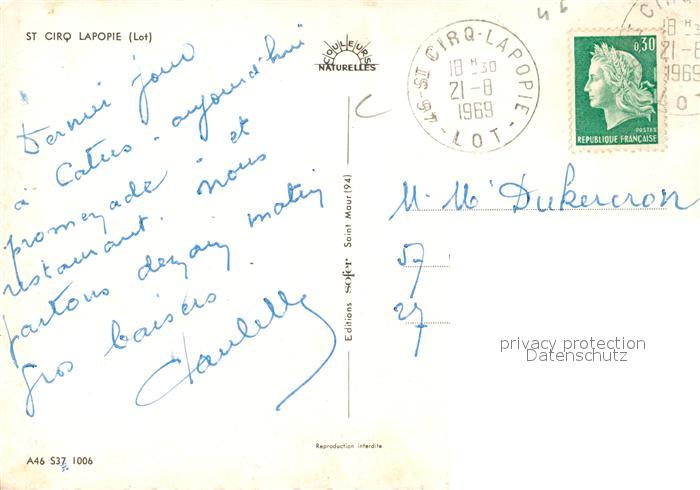 ST CIRQ LAPOPIE (Lot)
COULEURS
NATURELLES
46
46-ST CIRQ-LAPOPIE
18 H 30
21-8
1969
-LOT-
18 H 30
21-8
1969
LOT
0,30
POSTES
REPUBLIQUE FRANÇAISE
Dernier jour
à Catus - aujourd'hui
promenade et
restaurant. nous
partons demain matin
Gros baisers
M. Me Dukercron
57
27
Editions sofer Saint Maur (94)
privacy protection
Datenschutz
Reproduction interdite
A46 S37 1006